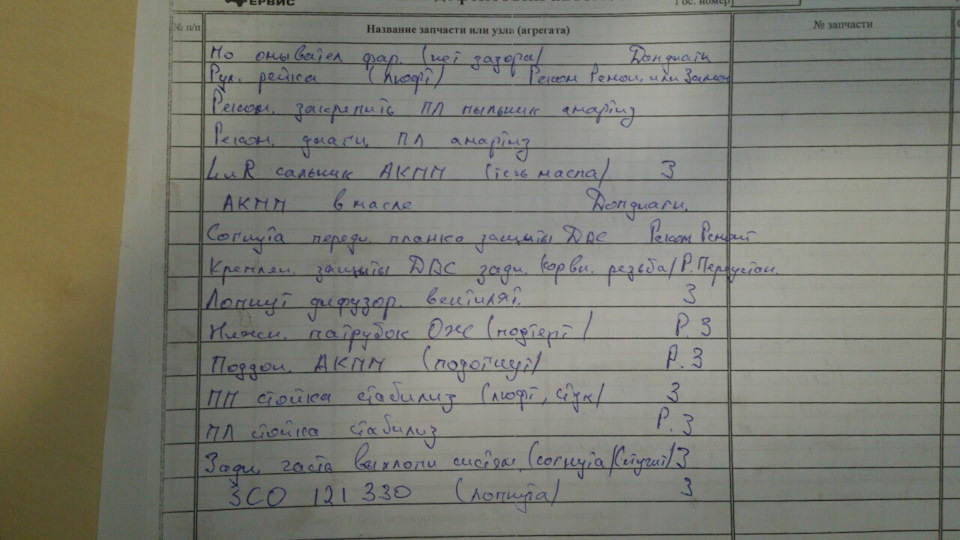 ЕРВИС
Гос. номер
№ п/п Название запчасти или узла (агрегата) № запчасти
Но омывател фар. (нет зазора) Допдиагн
Рул. рейка (люфт) Реком Ремон. или Замен
Реком. закрепить ПЛ пыльник амартиз
Реком. диагн. ПЛ амартиз
L и R сальник АКПП (есть масла) З
АКПП в масле Допдиагн.
Согнута передн. планка защиты ДВС Реком Ремонт
Креплен. защиты ДВС задн. (сорвн. резьба) Р. Переустан.
Лопнут дифузор. вентилят. З
Нижн. патрубок ОЖ (подтерт) Р. З
Поддон АКПП (подогнут) Р. З
ПП стойка стабилиз (люфт, стук) З
ПЛ стойка стабилиз Р. З
Задн. часта выхлопн систем. (согнута) (стучит) З
3C0 121 330 (лопнута) З